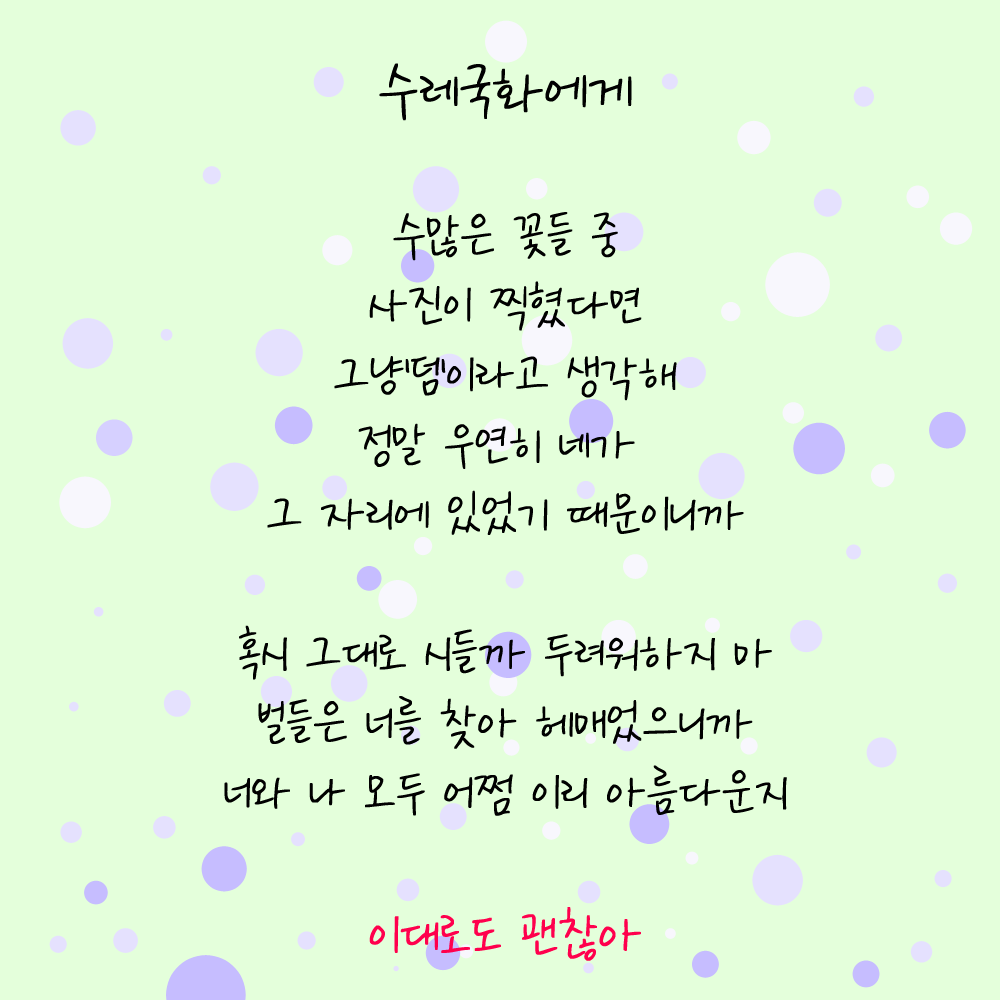 수레국화에게
수많은 꽃들 중
사진이 찍혔다면
그냥"덤"이라고 생각해
정말 우연히 네가
그 자리에 있었기 때문이니까
혹시 그대로 시들까 두려워하지 마
벌들은 너를 찾아 헤매었으니까
너와 나 모두 어쩜 이리 아름다운지
이대로도 괜찮아